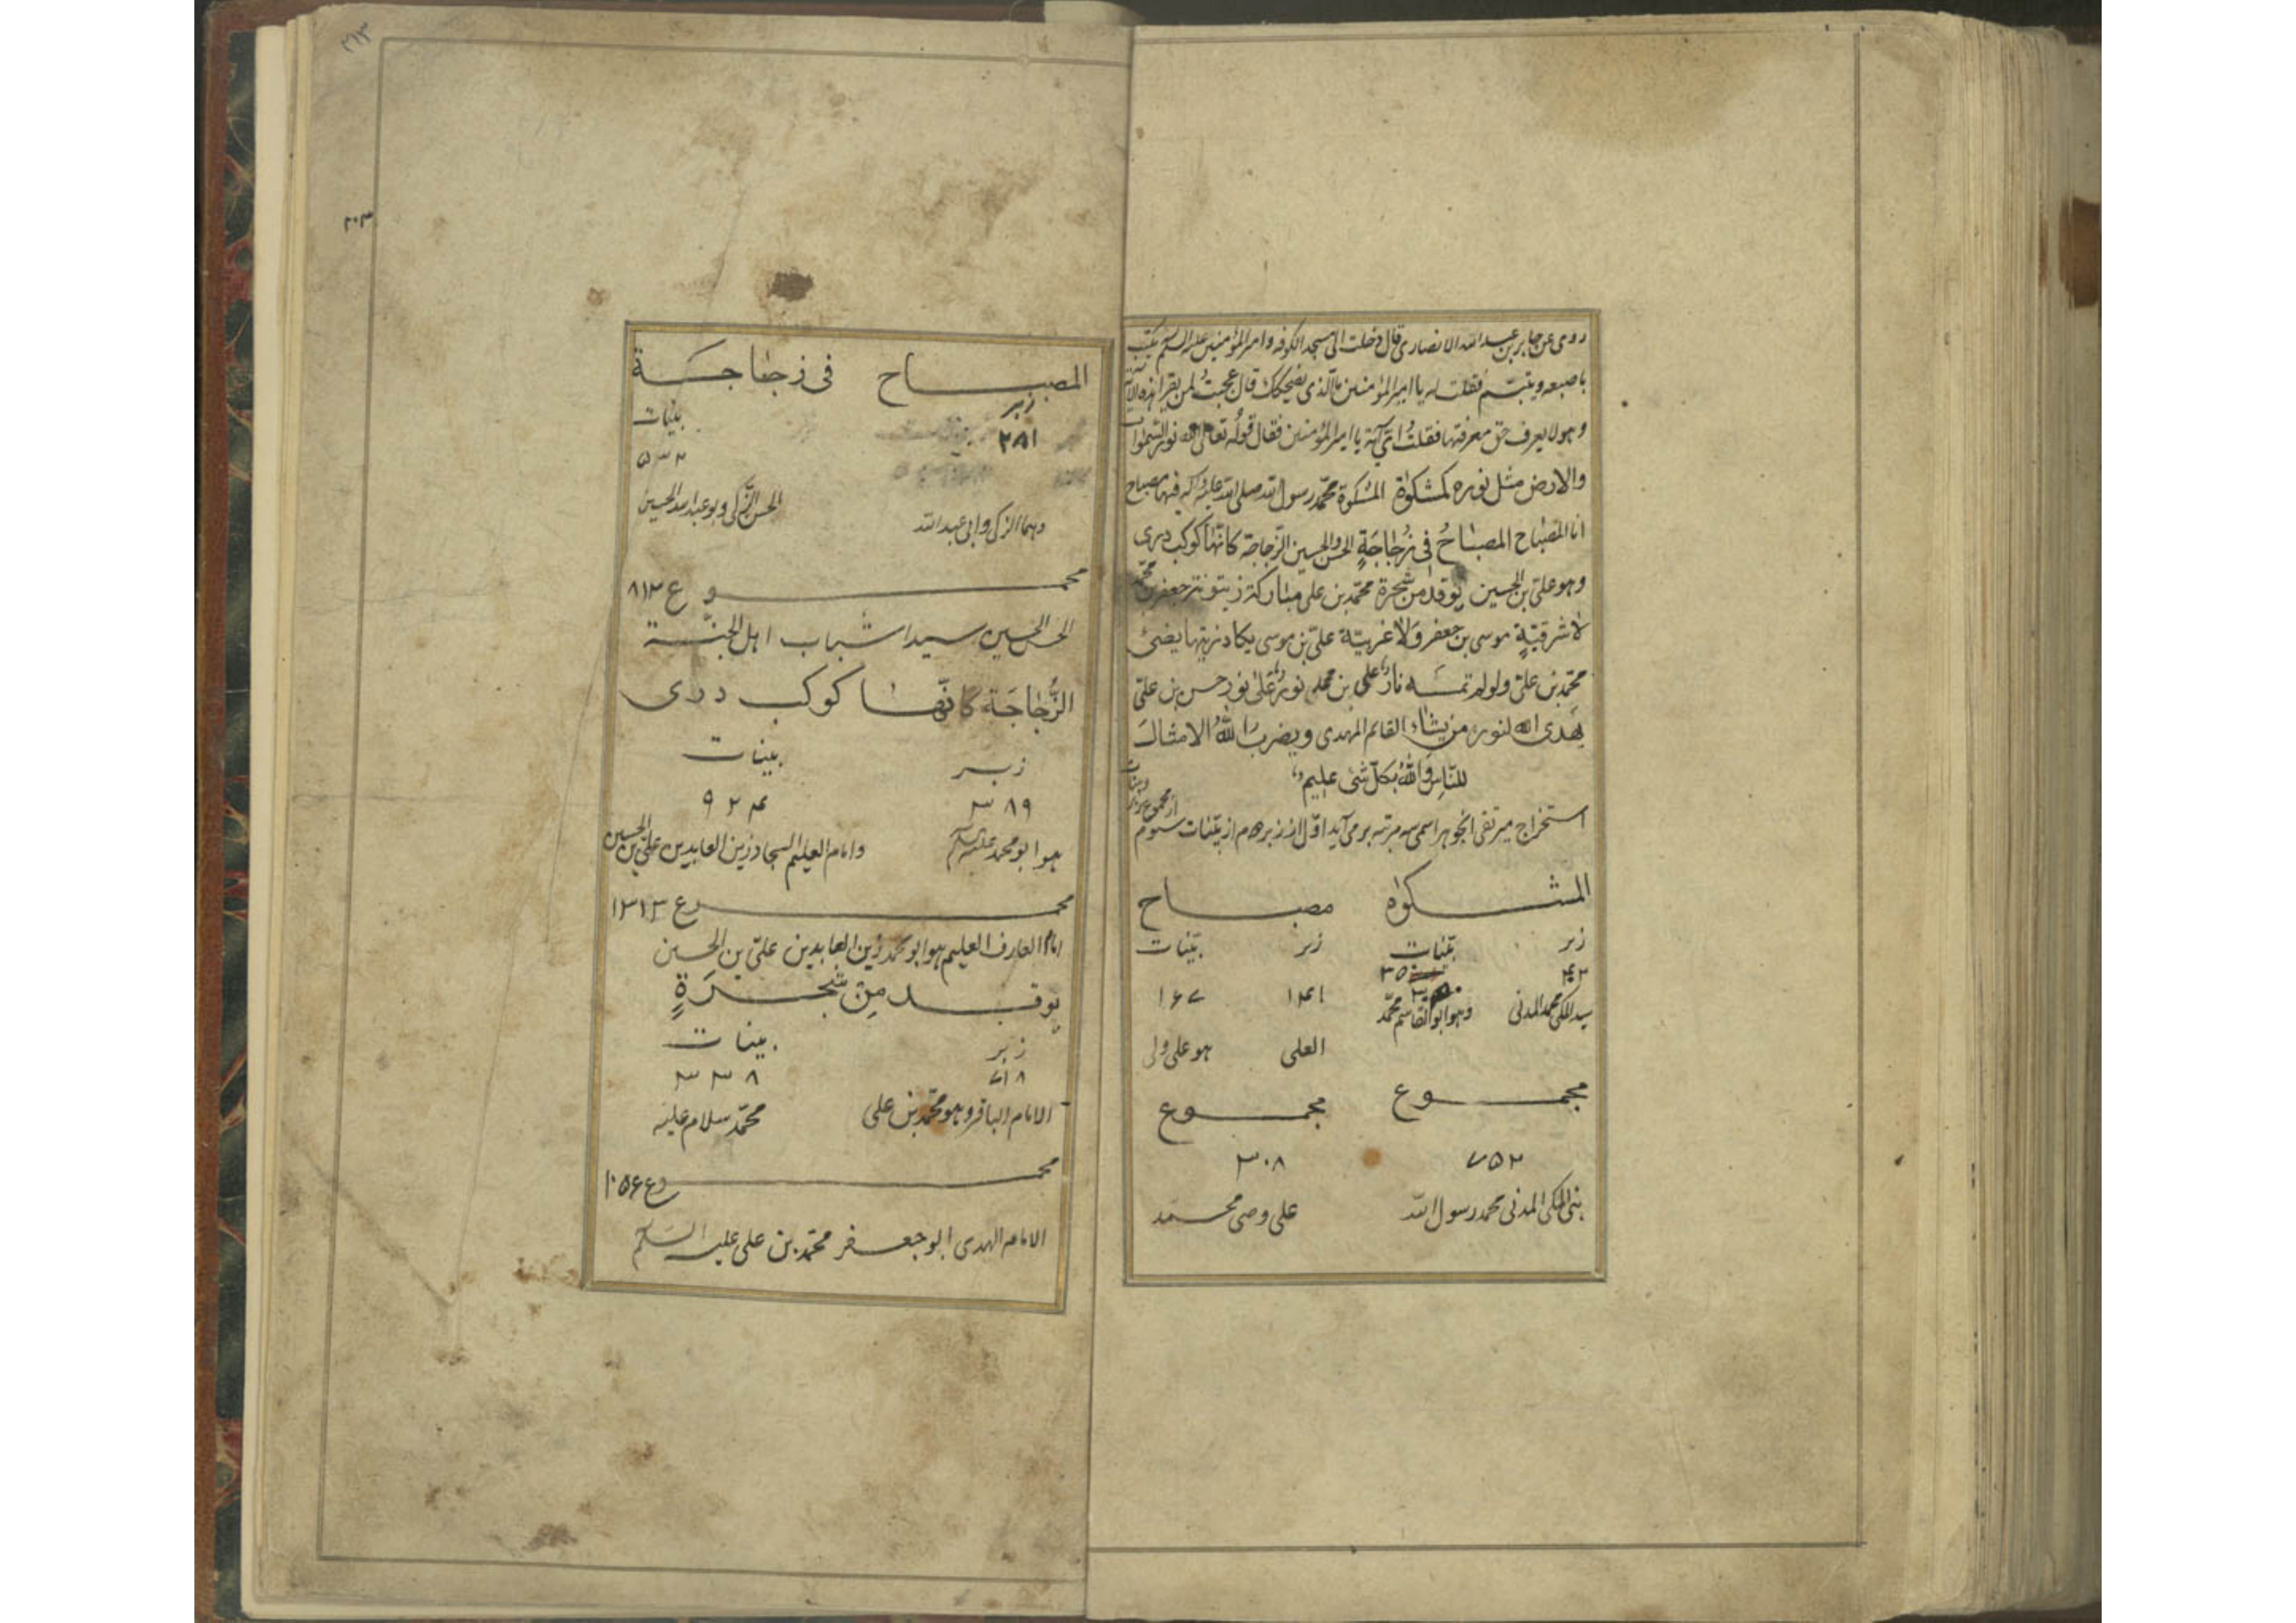 روی عن جابر بن عبد الله الانصاری قال دخلت الی مسجد الکوفه و امیر المؤمنین علیه السلم یکتب
باصبعه و یتبسم فقلت له یا امیر المؤمنین ما الذی یضحکک قال عجبتُ لمن یقرا هذه الآیة
و هو لا یعرف حق معرفتها فقلتُ ای آیة یا امیر المؤمنین فقال قوله تعالی الله نور السموات
والارض مثل نوره کمشکوٰة المشکوة محمد رسول الله صلی الله علیه و آله فیها مصباح
انا المصباح المصباحُ فی زُجٰاجَةٍ الحسن والحسین الزجاجة کانّها کوکب دری
وهو علی بن الحسین یوقد من شجرة محمد بن علی مبٰارکة زیتونة جعفر بن محمد
لا شرقیّةٍ موسی بن جعفر وَلا غربیّة علی بن موسی یکاد زیتها یضئ
محمد بن علی ولو لم تمسسه نار علی بن محمد نورٌ علیٰ نور حسن بن علی
یهدی الله لنوره من یشاء القائم المهدی و یضرب اللهُ الامثالَ
للنّاسِ وَاللهُ بکلّ شئ علیم
استخراج میر تقی انجو هر اسمی سه مرتبه بر می آید اوّل از زبر دوم از بیّنات سوم
از مجموع زبر و بینات
المشکوٰة مصباح
زبر بیّنات زبر بیّنات
۳۵۰
۴۰۲ ۱۴۱ ۱۶۷
سید المکی محمد المدنی وهو ابو القاسم محمّد
العلی هو علی ولی
مجموع مجموع
۷۵۲ ۳۰۸
نبی المکی المدنی محمد رسول الله علی وصی محمد
۲۱۳
۲۰۳
المصباح فی زجٰاجة
زبر بینات
۲۸۱ ۵۳۲
وهما الزکی و ابی عبد الله الحسن الزّکی و بو عبد الله الحسین
مجموع ۸۱۳
الحسن الحسین سیدا شباب اهل الجنّة
الزُّجٰاجَة کانّهٰا کوکب دری
زبر بینات
۳۸۹ ۹۲۴
هو ابو محمد علیه السلم و امام العلیم السجاد زین العابدین علی بن الحسین
مجموع ۱۳۱۳
امام العارف العلیم هو ابو محمد زین العابدین علیّ بن الحسین
یوقد مِن شجَرَةٍ
زبر بینات
۷۱۸ ۳۳۸
الامام الباقر وهو محمّد بن علی محمّد سلام علیه
مجموع ۱۰۵۶
الامام الهدی ابو جعفر محمّد بن علی علیه السلم